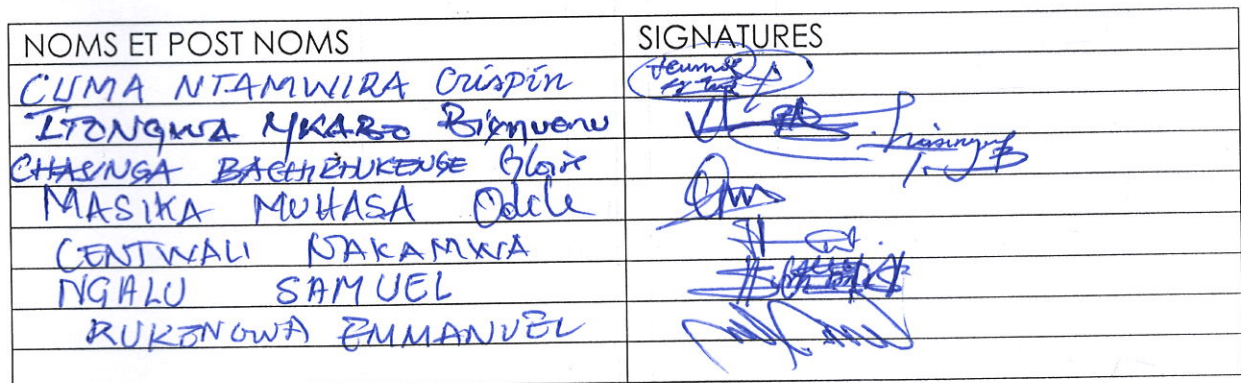 NOMS ET POST NOMS SIGNATURES
CUMA NTAMWIRA Crispin
ITONGWA MKABO Bienvenu
CHASINGA Gloire
MASIKA MUHASA Odile
CENTWALI NAKAMWA
NGALU SAMUEL
EMMANUEL